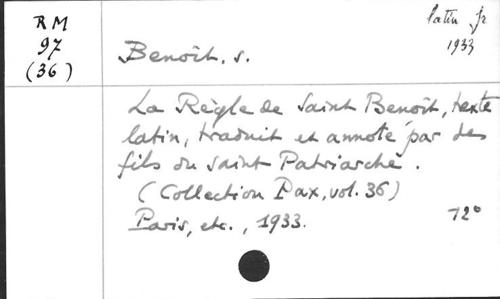 RM
97
(36)
latin fr
1933
Benoît, s.
La Règle de Saint Benoît, texte
latin, traduit et annoté par des
fils du saint Patriarche.
(Collection Pax, vol. 36)
Paris, etc., 1933.
12°